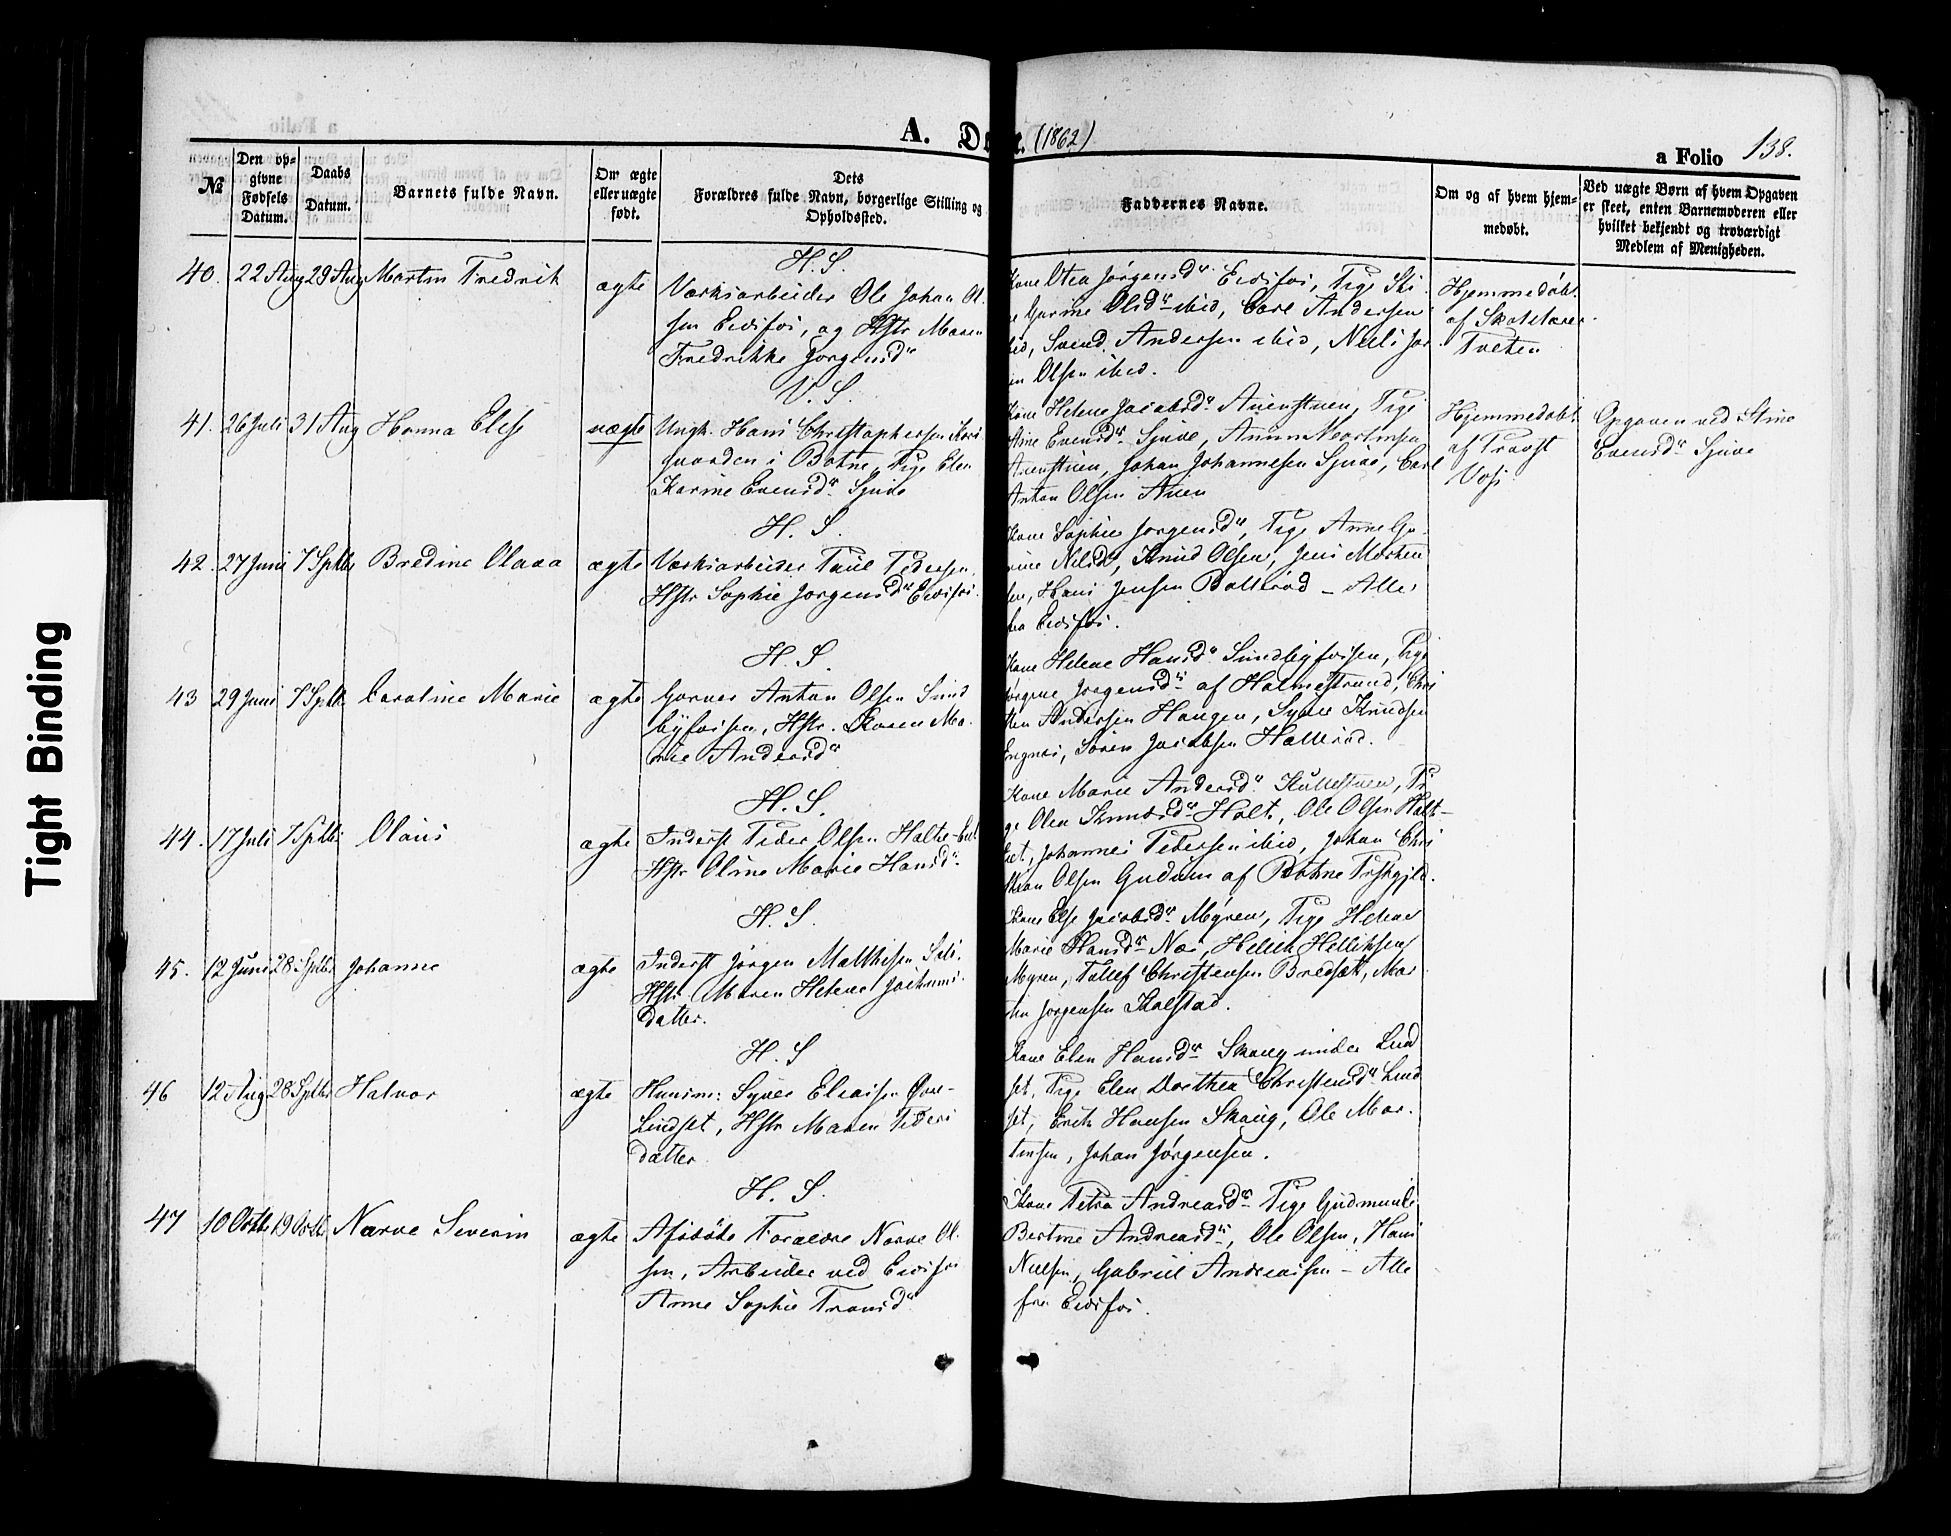 Tight Binding
a Folio
A. D
e. (1862)
a Folio 138.
№
Den op-
givne
Fødsels
Datum.
Daabs
Datum.
Barnets fulde Navn.
Om ægte
eller uægte
født.
Dets
Forældres fulde Navn, borgerlige Stilling og
Opholdssted.
Faddernes Navne.
Om og af hvem hjem-
medøbt.
Ved uægte Børn af hvem Opgaven
er skeet, enten Barnemoderen eller
hvilket bekjendt og troværdigt
Medlem af Menigheden.
H. S.
40. 22 Aug 29 Aug Martin Fredrik ægte
Værksarbeider Ole Johan Ol.
sen Eidsfos, og Hstr Maren
Fredrikke Jørgensdr
Kone Otea Jørgensdr Eidsfos, Pige
Gurine Olsdr ibid, Carl Andersen
Svend Andersen ibid, Niels
Olsen ibid.
Hjemmedøbt
af Skolelærer
Tveten
V. S.
41. 26 Juli 31 Aug Hanna Elise uægte
Ungk. Hans Christophersen
gaarden i Botne, Pige Elen
Karine Evensdr Sjuve
Kone Helene Jacobsdr Auenstuen, Pige
Stine Evensdr Sjuve, Anun Martinsen
Auenstuen, Johan Johannesen Sjuve, Carl
Anton Olsen Auen
Hjemmedøbt
af Provst
Voss
Opgaven ved Stine
Evensdr Sjuve
H. S.
42. 27 Juni 7 Septbr Bredine Olava ægte
Værksarbeider Paul Pedersen,
Hstr Sophie Jørgensdr Eidsfos.
Kone Sophie Jørgensdr, Pige Anne Gu-
rine Nilsdr, Knud Olsen, Jens Morten
sen, Hans Jensen Bollerød – Alle
fra Eidsfos.
H. S.
43 29 Juni 7 Septbr Caroline Marie ægte
Garver Anton Olsen Sund
byfossen, Hstr. Karen Ma-
rie Andersdr
Kone Helene Hansdr Sundbyfossen, Pige
Jørgine Jørgensdr af Holmestrand, Chri
sten Andersen Haugen, Syver Knudsen
Engnes, Søren Jacobsen Hallerød.
H. S.
44. 17 Juli 7 Septbr Olaus ægte
Inderst Peder Olsen Holts-
Hstr Oline Marie Hansdr
Kone Marie Andersdr Kullestuen, Pi
ge Olea Knudsdr Holt, Ole Olsen Holt-
Johannes Pedersen ibid, Johan Chri
stian Olsen Gudum af Botne Præstgjeld.
H. S.
45. 12 Juni 28 Septbr Johanne ægte
Inderst Jørgen Matthisen
Hstr Maren Helene Jochums-
datter.
Kone Else Jacobsdr Myren, Pige Helene
Marie Hansdr Næs, Hellik Helliksen
Myren, Tollef Christensen Bredsæt, Mar
tin Jørgensen Kolstad.
H. S
46 12 Aug 28 Septbr Halvor ægte
Huusm: Syver Eliassen Øvre-
Lindset, Hstr Maren Peders
datter
Kone Elen Hansdr Skaug under Lind
set, Pige Elen Dorthea Christensdr Lind
set, Erik Hansen Skaug, Ole Mar-
tinsen, Johan Jørgensen.
H. S.
47 10 Octbr 19 Octbr Narve Severin ægte
Afdøde Forældre Narve Ol.
sen, Arbeider ved Eidsfos
Anne Sophie Fransdr
Kone Petra Andreasdr Pige Gudmunde
Bertine Andreasdr, Ole Olsen, Hans
Nielsen, Gabriel Andreassen – Alle
fra Eidsfos.